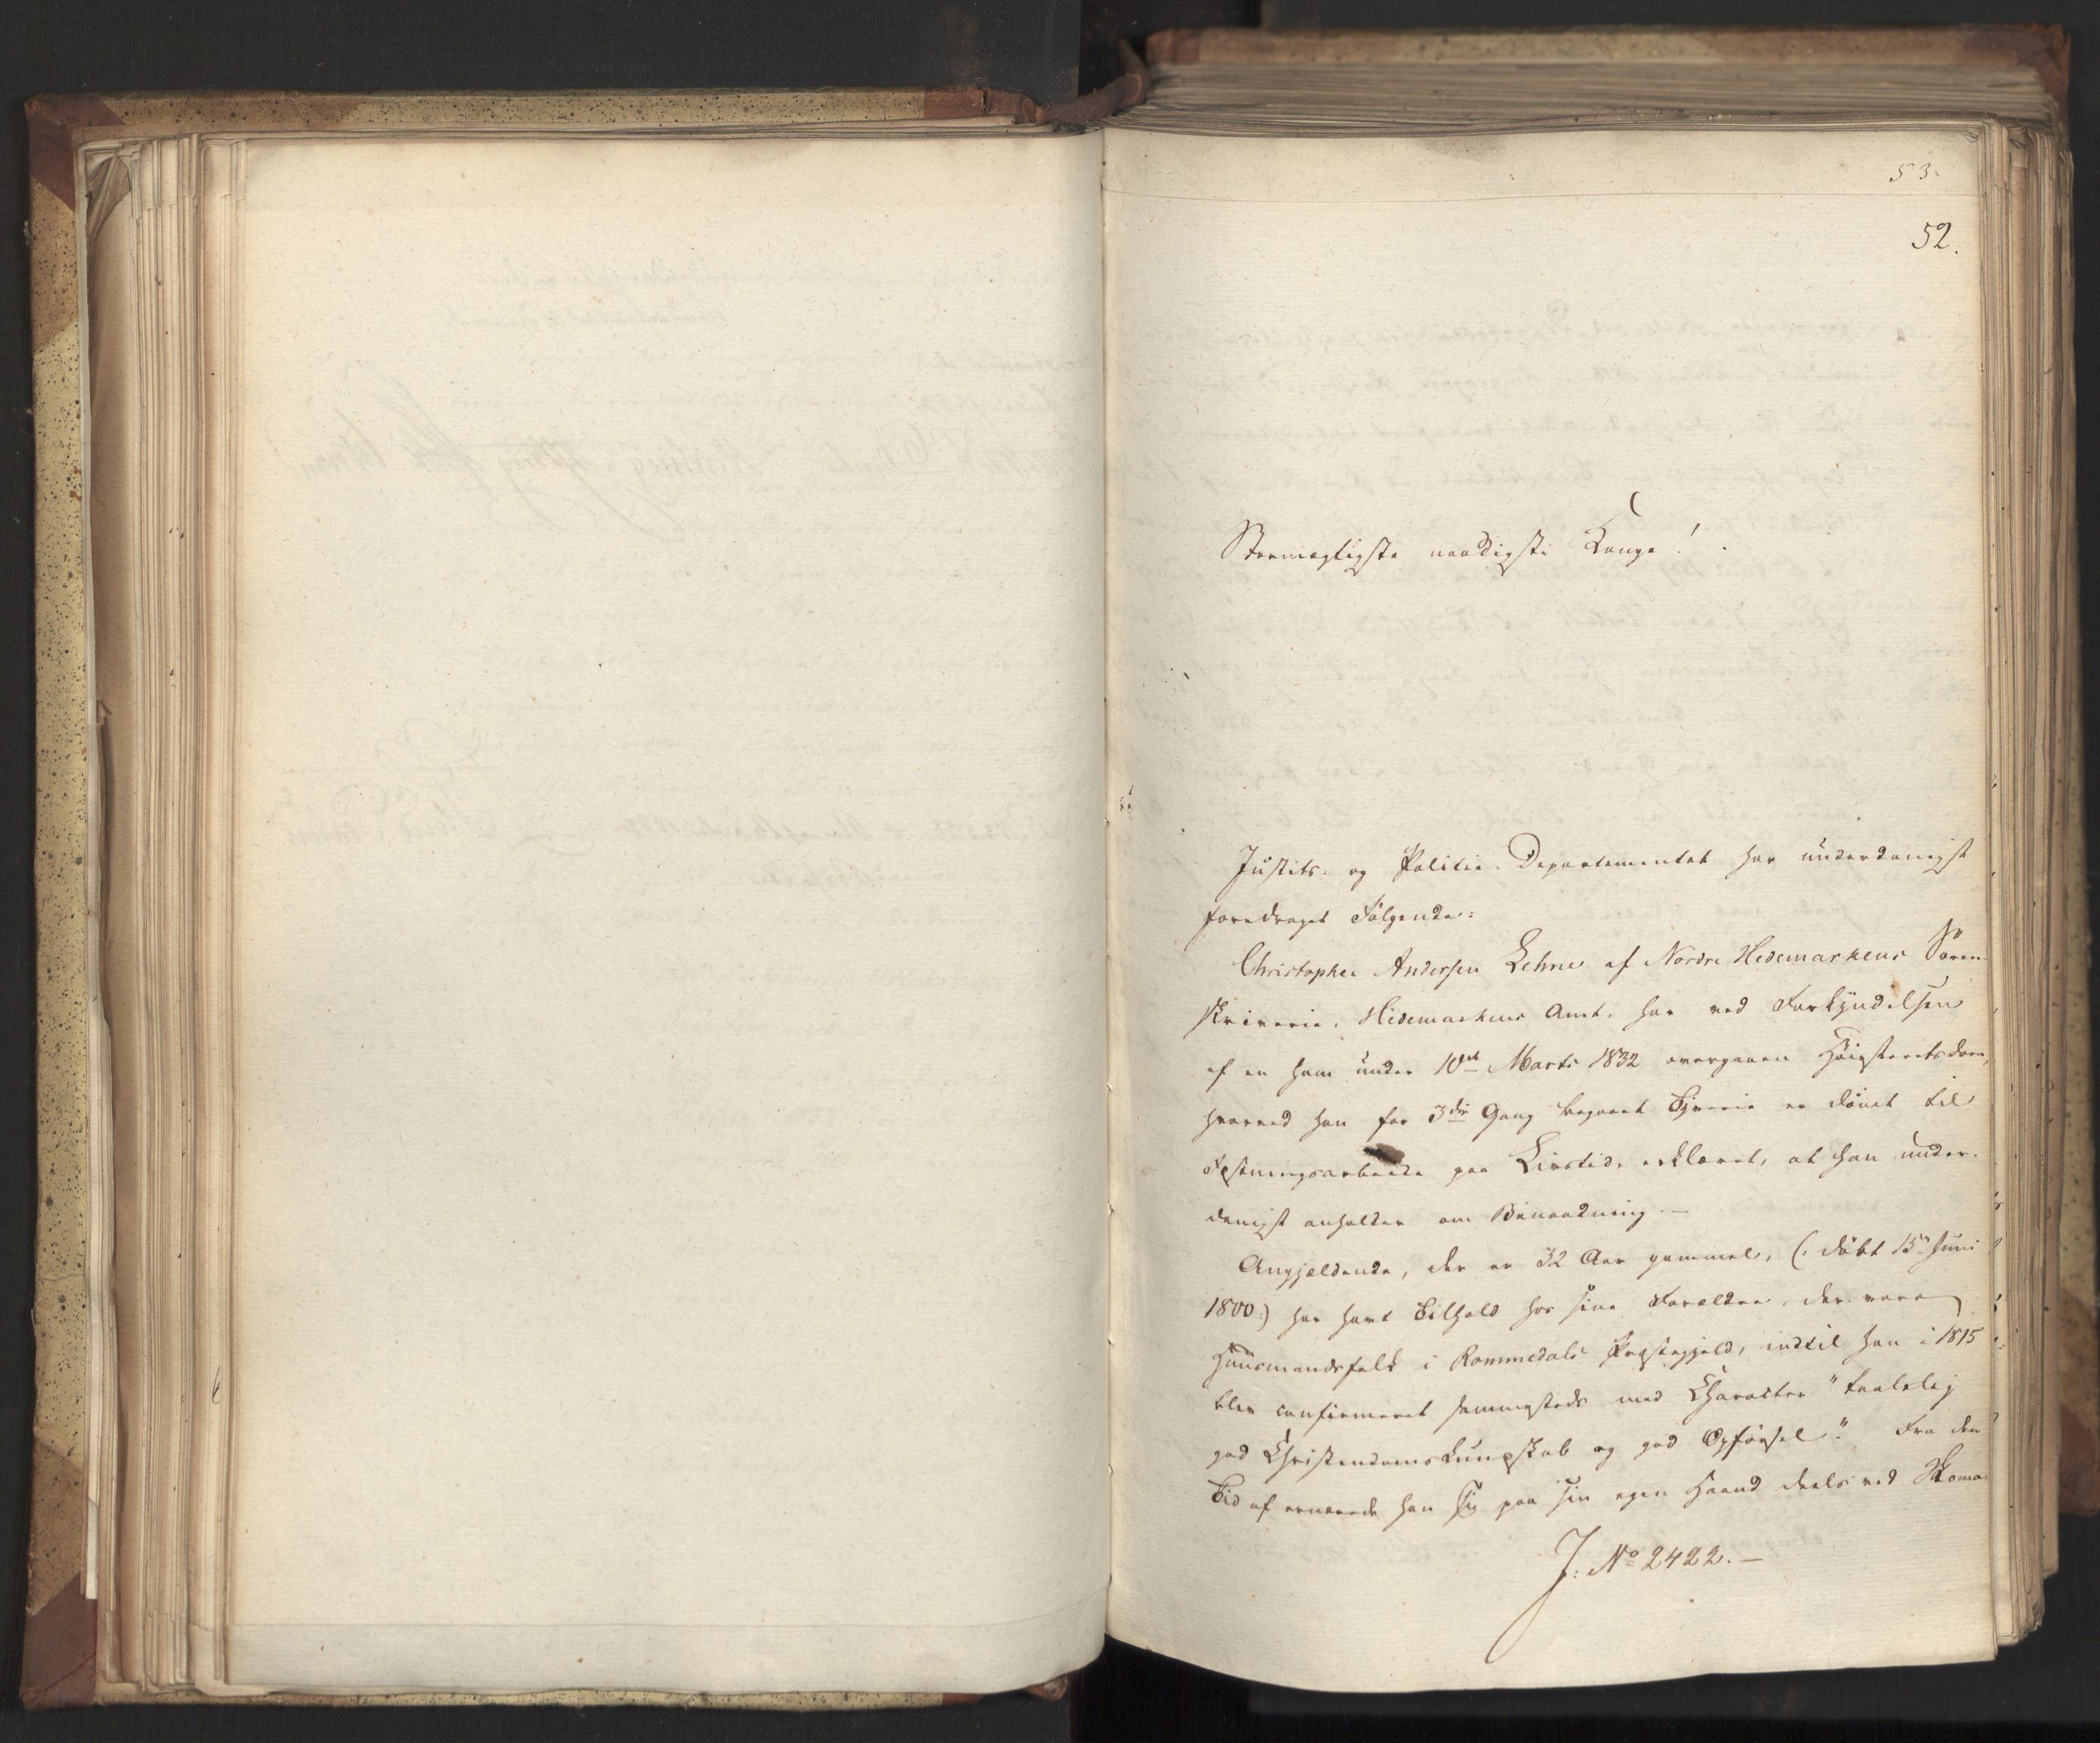 53.
52.
Stormægtigste naadigste Konge!
Justits- og Politie-Departementet har underdanigst
foredraget Følgende:
Christopher Andersen Lehne af Nordre Hedemarkens Soren-
skriverie, Hedemarkens Amt, har ved Forkyndelsen
af en ham under 10de Marts 1832 overgaaen Høiesteretsdom,
hvorved han for 3die Gang begaaet Tyverie er dømt til
Fæstningsarbeide paa Livstid, erklæret, at han under-
danigst anholder om Benaadning. —
Angjældende, der er 32 Aar gammel, (: døbt 15de Juni
1800:) har havt Tilhold hos sine Forældre, der vare
Huusmandsfolk i Rommedals Præstegjeld, indtil han i 1815
blev confirmeret sammesteds med Charakter "taalelig
god Christendomskundskab og god Opførsel." Fra den
Tid af ernærede han sig paa sin egen Haand deels ved Skoma-
J: No 2422. —